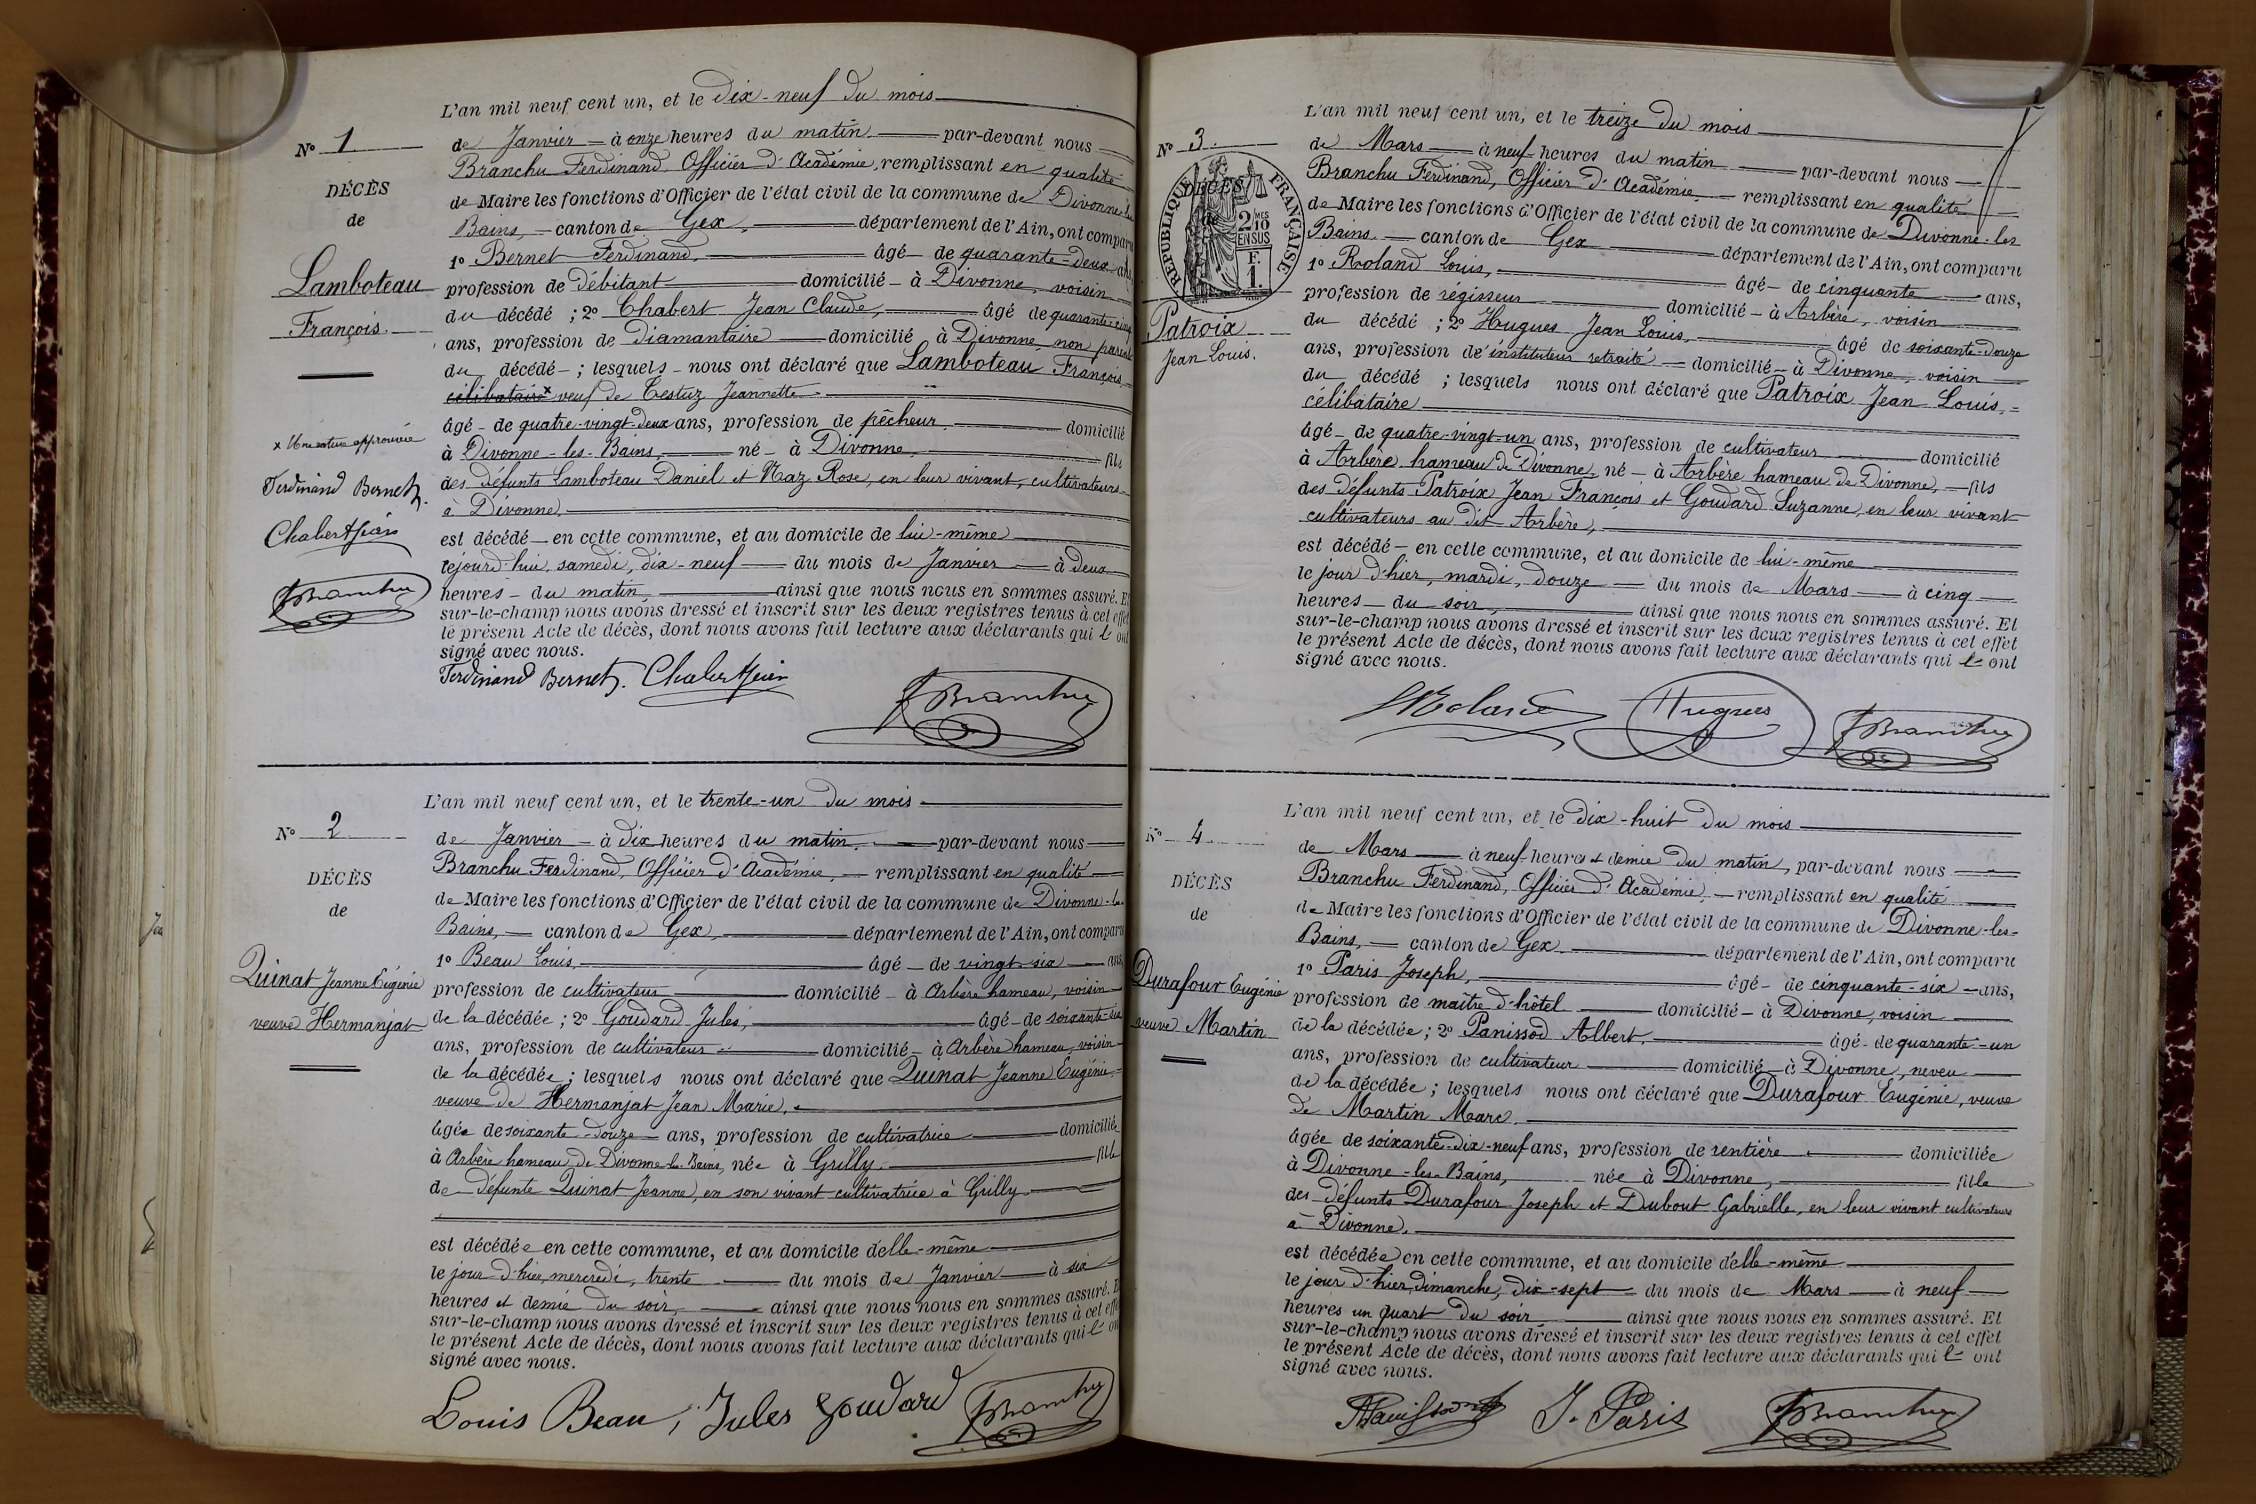 L'an mil neuf cent un, et le dix-neuf du mois
N° 1
de Janvier à onze heures du matin par-devant nous
Branchu Ferdinand, Officier d'Académie, remplissant en qualité
DÉCÈS
de Maire les fonctions d'Officier de l'état civil de la commune de Divonne-les
de
Bains, canton de Gex, département de l'Ain, ont comparu
1° Bernet Ferdinand, âgé de quarante-deux ans
Lamboteau
profession de débitant domicilié à Divonne, voisin
François
du décédé ; 2° Chabert Jean Claude, âgé de quarante-cinq
ans, profession de diamantaire domicilié à Divonne, non parent
du décédé ; lesquels nous ont déclaré que Lamboteau François,
célibataire x veuf de Testuz Jeannette
âgé de quatre-vingt-deux ans, profession de pêcheur domicilié
x Une rature approuvée
à Divonne-les-Bains, né à Divonne, fils
Ferdinand Bernet
des défunts Lamboteau Daniel et Maz Rose, en leur vivant, cultivateurs
à Divonne,
Chabert Jean
est décédé en cette commune, et au domicile de lui-même
cejourd'hui, samedi, dix-neuf du mois de Janvier à deux
FBranchu
heures du matin, ainsi que nous nous en sommes assuré. Et
sur-le-champ nous avons dressé et inscrit sur les deux registres tenus à cet effet
le présent Acte de décès, dont nous avons fait lecture aux déclarants qui l'ont
signé avec nous.
Ferdinand Bernet. Chabert Jean
FBranchu
L'an mil neuf cent un, et le trente-un du mois
N° 2
de Janvier à dix heures du matin, par-devant nous
Branchu Ferdinand, Officier d'Académie, remplissant en qualité
DÉCÈS
de Maire les fonctions d'Officier de l'état civil de la commune de Divonne-les-
de
Bains, canton de Gex, département de l'Ain, ont comparu
1° Beau Louis, âgé de vingt-six ans,
Quinat Jeanne Eugénie
profession de cultivateur domicilié à Arbère hameau, voisin
veuve Hermanjat
de la décédée ; 2° Goudard Jules, âgé de soixante-six
ans, profession de cultivateur domicilié à Arbère hameau, voisin
de la décédée ; lesquels nous ont déclaré que Quinat Jeanne Eugénie,
veuve de Hermanjat Jean Marie,
âgée de soixante-douze ans, profession de cultivatrice domiciliée
à Arbère hameau de Divonne-les-Bains, née à Grilly fille
de défunte Quinat Jeanne, en son vivant cultivatrice à Grilly
est décédée en cette commune, et au domicile d'elle-même
le jour d'hier, mercredi, trente du mois de Janvier à six
heures et demie du soir, ainsi que nous nous en sommes assuré. Et
sur-le-champ nous avons dressé et inscrit sur les deux registres tenus à cet effet
le présent Acte de décès, dont nous avons fait lecture aux déclarants qui l'ont
signé avec nous.
Louis Beau, Jules Goudard FBranchu
L'an mil neuf cent un, et le treize du mois
N° 3.
de Mars à neuf heures du matin par-devant nous
Branchu Ferdinand, Officier d'Académie, remplissant en qualité
DÉCÈS
RÉPUBLIQUE FRANÇAISE
2 MES 10
EN SUS
F.
1.
de Maire les fonctions d'Officier de l'état civil de la commune de Divonne-les
Bains canton de Gex département de l'Ain, ont comparu
1° Roland Louis, âgé de cinquante ans,
profession de régisseur domicilié à Arbère, voisin
Patroix
Jean Louis.
du décédé ; 2° Hugues Jean Louis, âgé de soixante-douze
ans, profession de instituteur retraité domicilié à Divonne, voisin
du décédé ; lesquels nous ont déclaré que Patroix Jean Louis,
célibataire
âgé de quatre-vingt-un ans, profession de cultivateur domicilié
à Arbère hameau de Divonne, né à Arbère hameau de Divonne, fils
des défunts Patroix Jean François et Goudard Suzanne, en leur vivant
cultivateurs au dit Arbère,
est décédé en cette commune, et au domicile de lui-même
le jour d'hier, mardi, douze du mois de Mars à cinq
heures du soir, ainsi que nous nous en sommes assuré. Et
sur-le-champ nous avons dressé et inscrit sur les deux registres tenus à cet effet
le présent Acte de décès, dont nous avons fait lecture aux déclarants qui l'ont
signé avec nous.
LRoland Hugues FBranchu
L'an mil neuf cent un, et le dix-huit du mois
N° 4
de Mars à neuf heures et demie du matin, par-devant nous
Branchu Ferdinand, Officier d'Académie, remplissant en qualité
DÉCÈS
de Maire les fonctions d'Officier de l'état civil de la commune de Divonne-les-
de
Bains, canton de Gex département de l'Ain, ont comparu
1° Paris Joseph, âgé de cinquante-six ans,
Durafour Eugénie
profession de maître d'hôtel domicilié à Divonne, voisin
veuve Martin
de la décédée ; 2° Panissod Albert, âgé de quarante-un
ans, profession de cultivateur domicilié à Divonne, neveu
de la décédée ; lesquels nous ont déclaré que Durafour Eugénie, veuve
de Martin Marc
âgée de soixante-dix-neuf ans, profession de rentière domiciliée
à Divonne-les-Bains, née à Divonne, fille
des défunts Durafour Joseph et Dubout Gabrielle, en leur vivant cultivateurs
à Divonne,
est décédée en cette commune, et au domicile d'elle-même
le jour d'hier, dimanche, dix-sept du mois de Mars à neuf
heures un quart du soir, ainsi que nous nous en sommes assuré. Et
sur-le-champ nous avons dressé et inscrit sur les deux registres tenus à cet effet
le présent Acte de décès, dont nous avons fait lecture aux déclarants qui l'ont
signé avec nous.
APanissod J. Paris FBranchu